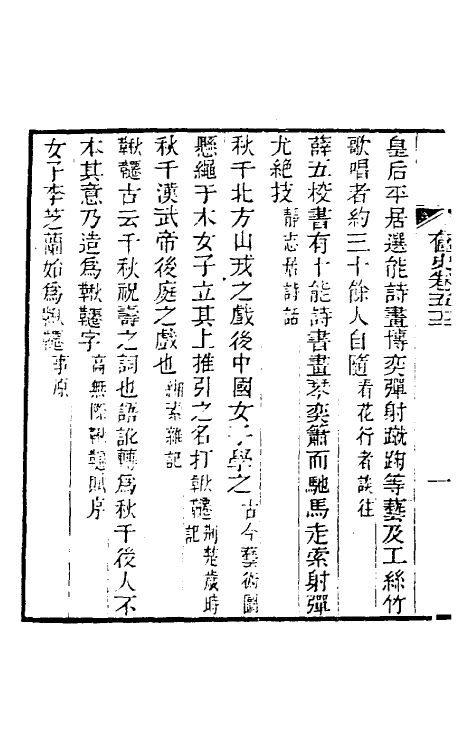 奩史卷五十三
一
皇后平居選能詩畫博奕彈射蹴踘等藝及工絲竹
歌唱者約三十餘人自隨看花行者談往
薛五校書有十能詩書畫琴奕簫而馳馬走索射彈
尤絶技靜志居詩話
秋千北方山戎之戲後中國女子學之古今藝術圖
懸繩于木女子立其上推引之名打鞦韆荆楚歲時記
秋千漢武帝後庭之戲也緗素雜記
鞦韆古云千秋祝壽之詞也語訛轉爲秋千後人不
本其意乃造爲鞦韆字高無際鞦韆賦序
女子李芝蘭始爲鞦韆事原